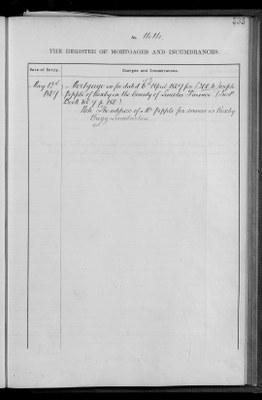 No. 1414.
THE REGISTER OF MORTGAGES AND INCUMBRANCES.
Date of Entry.
Charges and Incumbrances.
May 13th
1887
Mortgage so far dated 6th April 1887 for £300 to Joseph
Popple of Roxby in the County of Lincoln Farmer (
Book No 7 p. 158)
Note The address of Mr Popple for service is Roxby
Brigg Lincolnshire